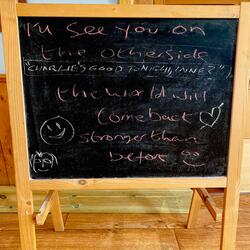 I'll see you on
the otherside
"CHARLIE'S GOOD TONIGHT, INNIT?"
the world will
come back
stronger than
before